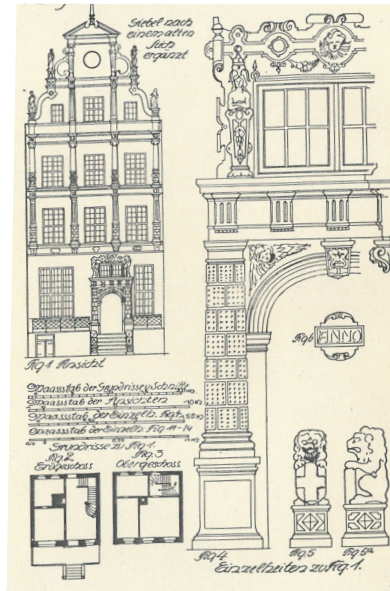 Giebel nach
einem alten
Stich
ergänzt
Fig. 1 Ansicht
Fig. 6
ANNO
Maasstab der Grundrisse u. Schnitte
Maasstab der Ansichten
10 m
Maasstab der Einzelh.
Maasstab der Einzelh. Fig. 11-14
Grundrisse zu Fig. 1.
Fig. 2
Erdgeschoss
Fig. 3
Obergeschoss
Fig. 4
Fig. 5
Fig. 5a
Einzelheiten zu Fig. 1.